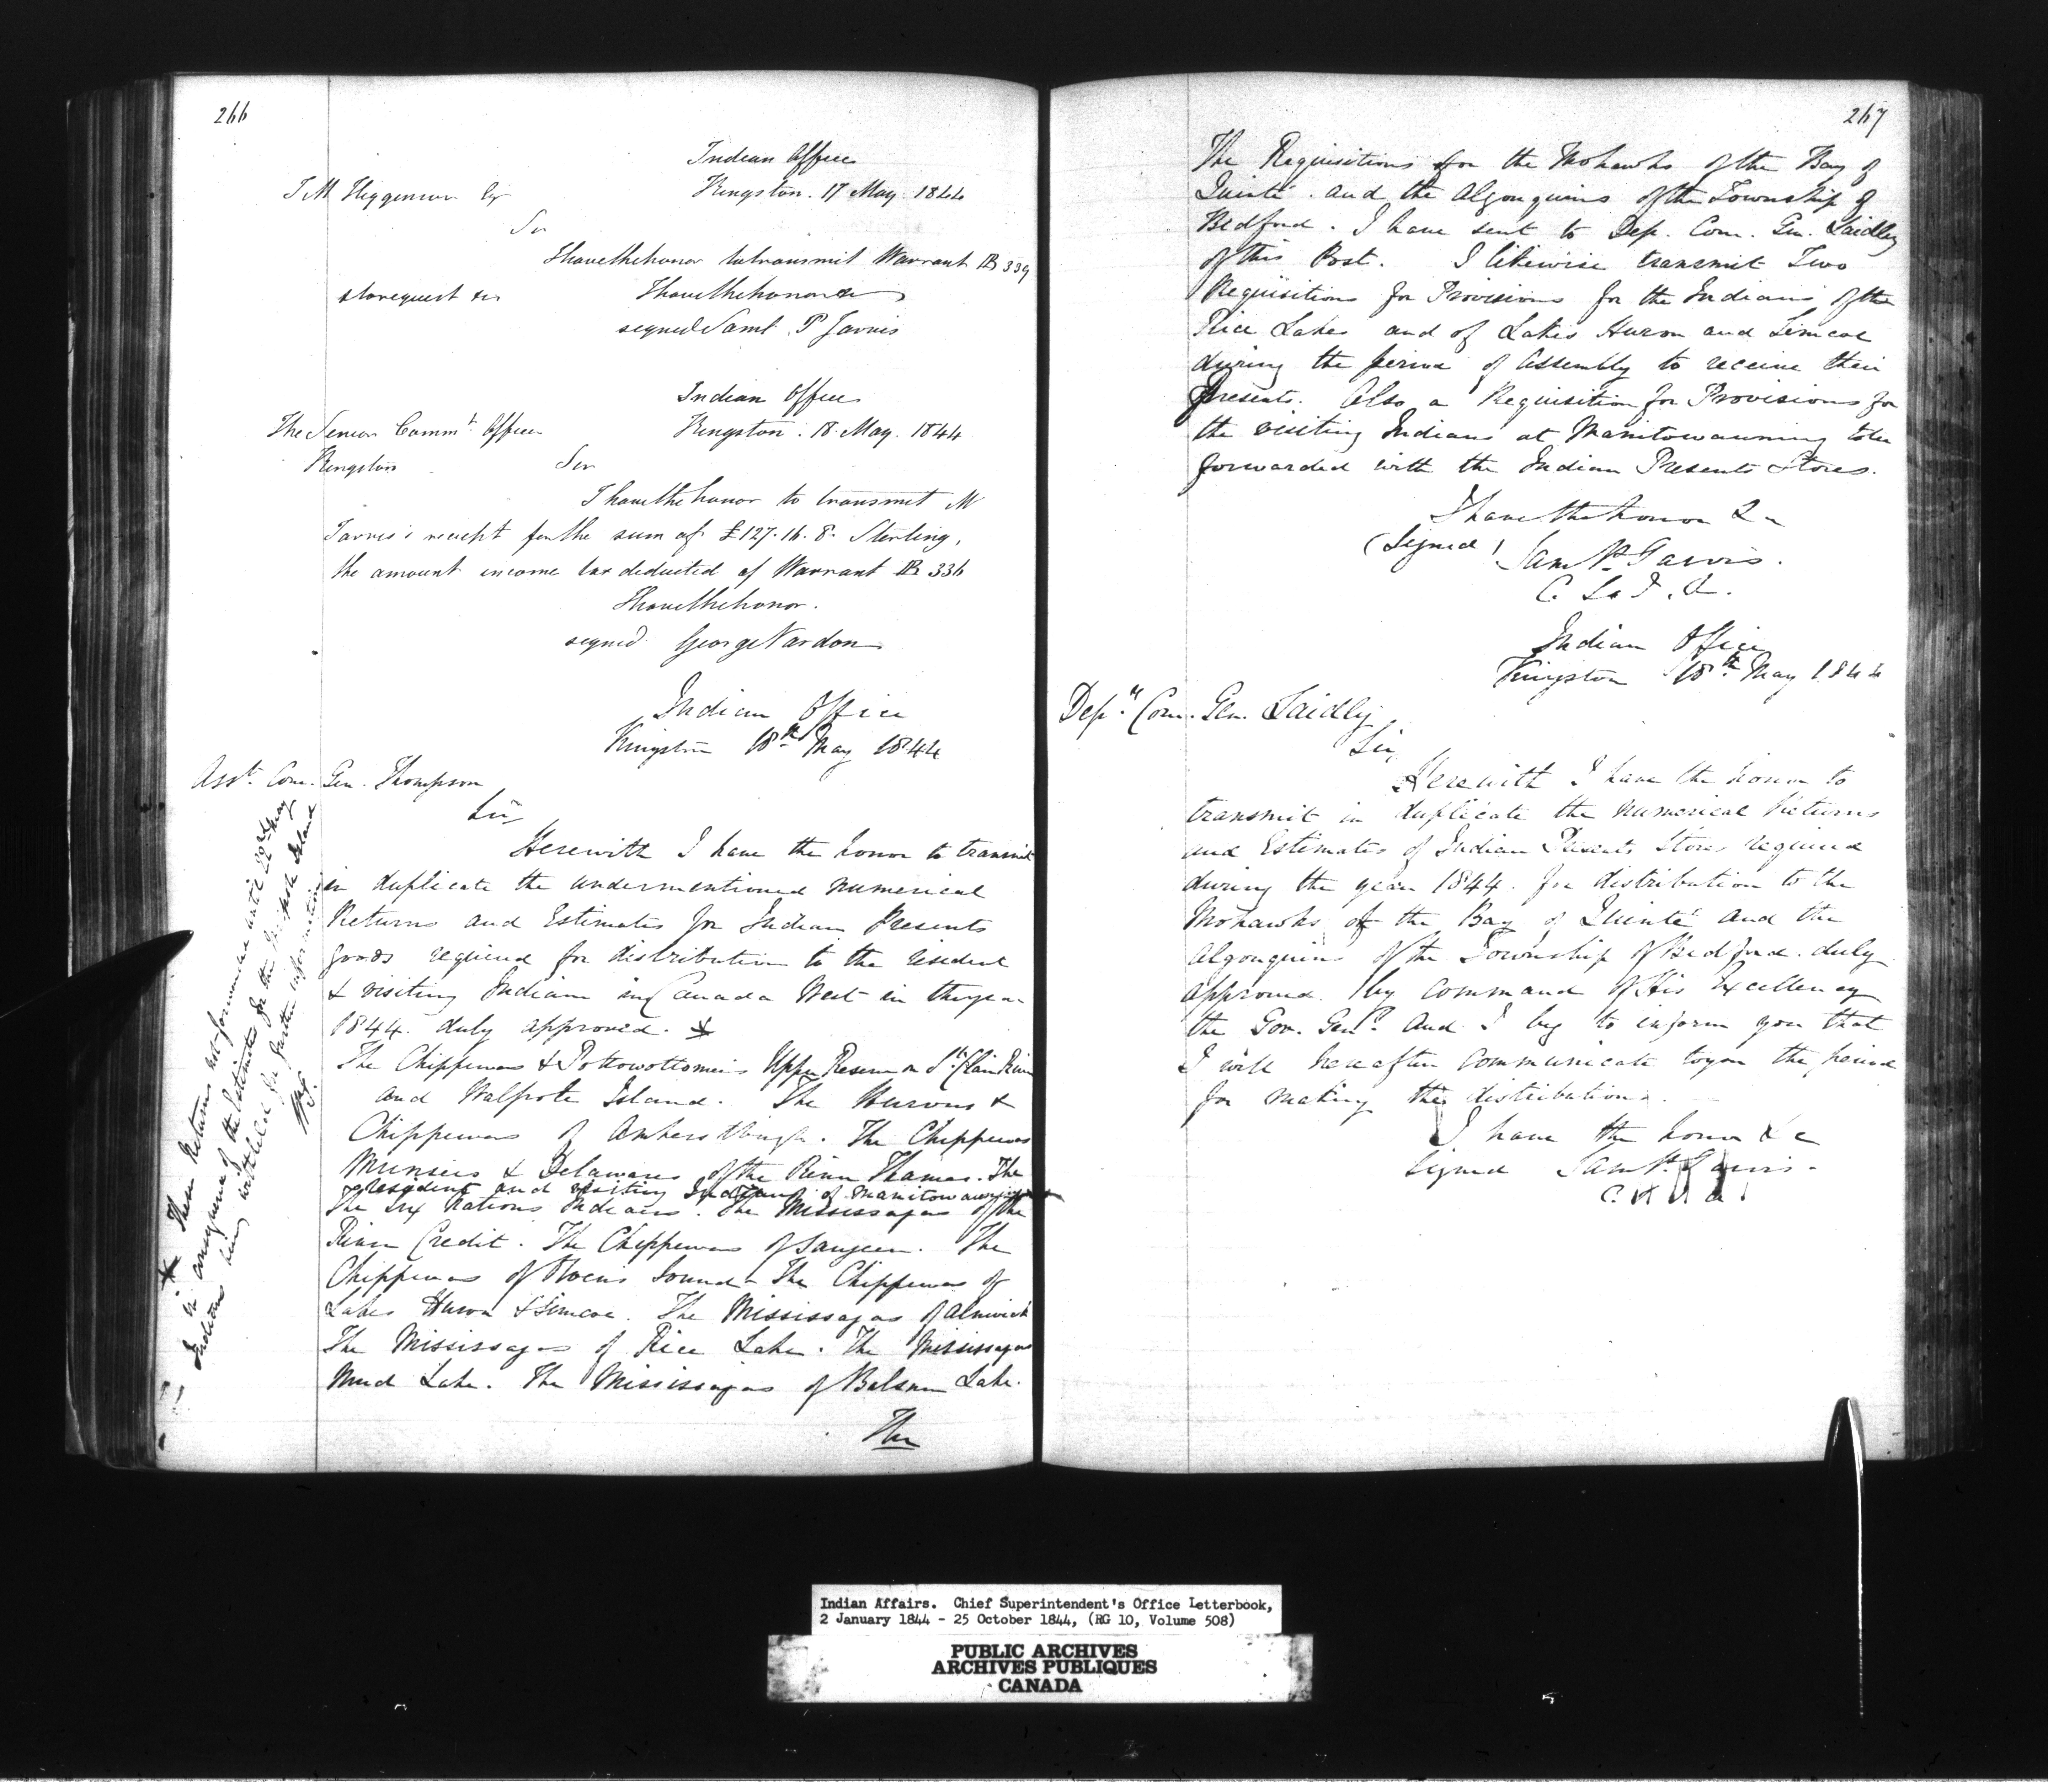 266
Indian Office
J M Higginson Esq Kingston. 17 May. 1844
Sir
I have the honor to transmit Warrant B 339
I have the honor &c
signed Saml P Jarvis
Indian Office
The Senior Commt Officer Kingston. 18. May. 1844
Kingston Sir
I have the honor to transmit Mr
Jarvis's receipt for the sum of £127.16.8. Sterling,
the amount income tax deducted of Warrant B 336
I have the honor.
signed George Vardon
Indian Office
Kingston 18th May 1844
Asst. Com. Gen. Thompson
Sir
Herewith I have the honor to transmit
in duplicate the undermentioned numerical
Returns and Estimates for Indian Presents
goods required for distribution to the resident
& visiting Indians in Canada West in the year
1844. duly approved. *
The Chippewas & Pottowottomeis Upper Reserve on St Clair River
and Walpole Island. The Hurons &
Chippewas of Amherstburgh. The Chippewas
Munsees & Delawares of the River Thames. The
resident and visiting Indians of Manitowauning
The Six Nations Indians. The Mississagas of the
River Credit. The Chippewas of Saugeen. The
Chippewas of Owens Sound. The Chippewas of
Lakes Huron & Simcoe. The Mississagas of Alnwick
The Mississagas of Rice Lake. The Mississagas
Mud Lake. The Mississagas of Balsam Lake.
The
* These Returns not forwarded until 22nd May
in consequence of the Estimates for the Walpole Island
Indians being withheld for further information
267
The Requisitions for the Mohawks of the Bay of
Quinté. and the Algonquins of the Township of
Bedford. I have sent to Dep. Com. Gen. Laidley
of this Post. I likewise transmit Two
Requisitions for Provisions for the Indians of the
Rice Lakes and of Lakes Huron and Simcoe
during the period of assembly to receive their
Presents. Also a Requisition for Provisions for
the visiting Indians at Manitowauning to be
forwarded with the Indian Presents Stores.
I have the honor &c
(Signed) Sam P. Jarvis.
C. S. I. A.
Indian Office
Kingston 18th May 1844
Depy. Com. Gen. Laidly,
Sir,
Herewith I have the honor to
transmit in duplicate the numerical Returns
and Estimates of Indian Presents Stores required
during the year 1844. for distribution to the
Mohawks of the Bay of Quinté and the
Algonquins of the Township of Bedford. duly
approved. by command of His Excellency
the Gov. Genl. And I beg to inform you that
I will hereafter communicate to you the period
for making the distribution.
I have the honor &c
Signed Sam P. Jarvis.
Indian Affairs. Chief Superintendent's Office Letterbook,
2 January 1844 - 25 October 1844, (RG 10, Volume 508)
PUBLIC ARCHIVES
ARCHIVES PUBLIQUES
CANADA